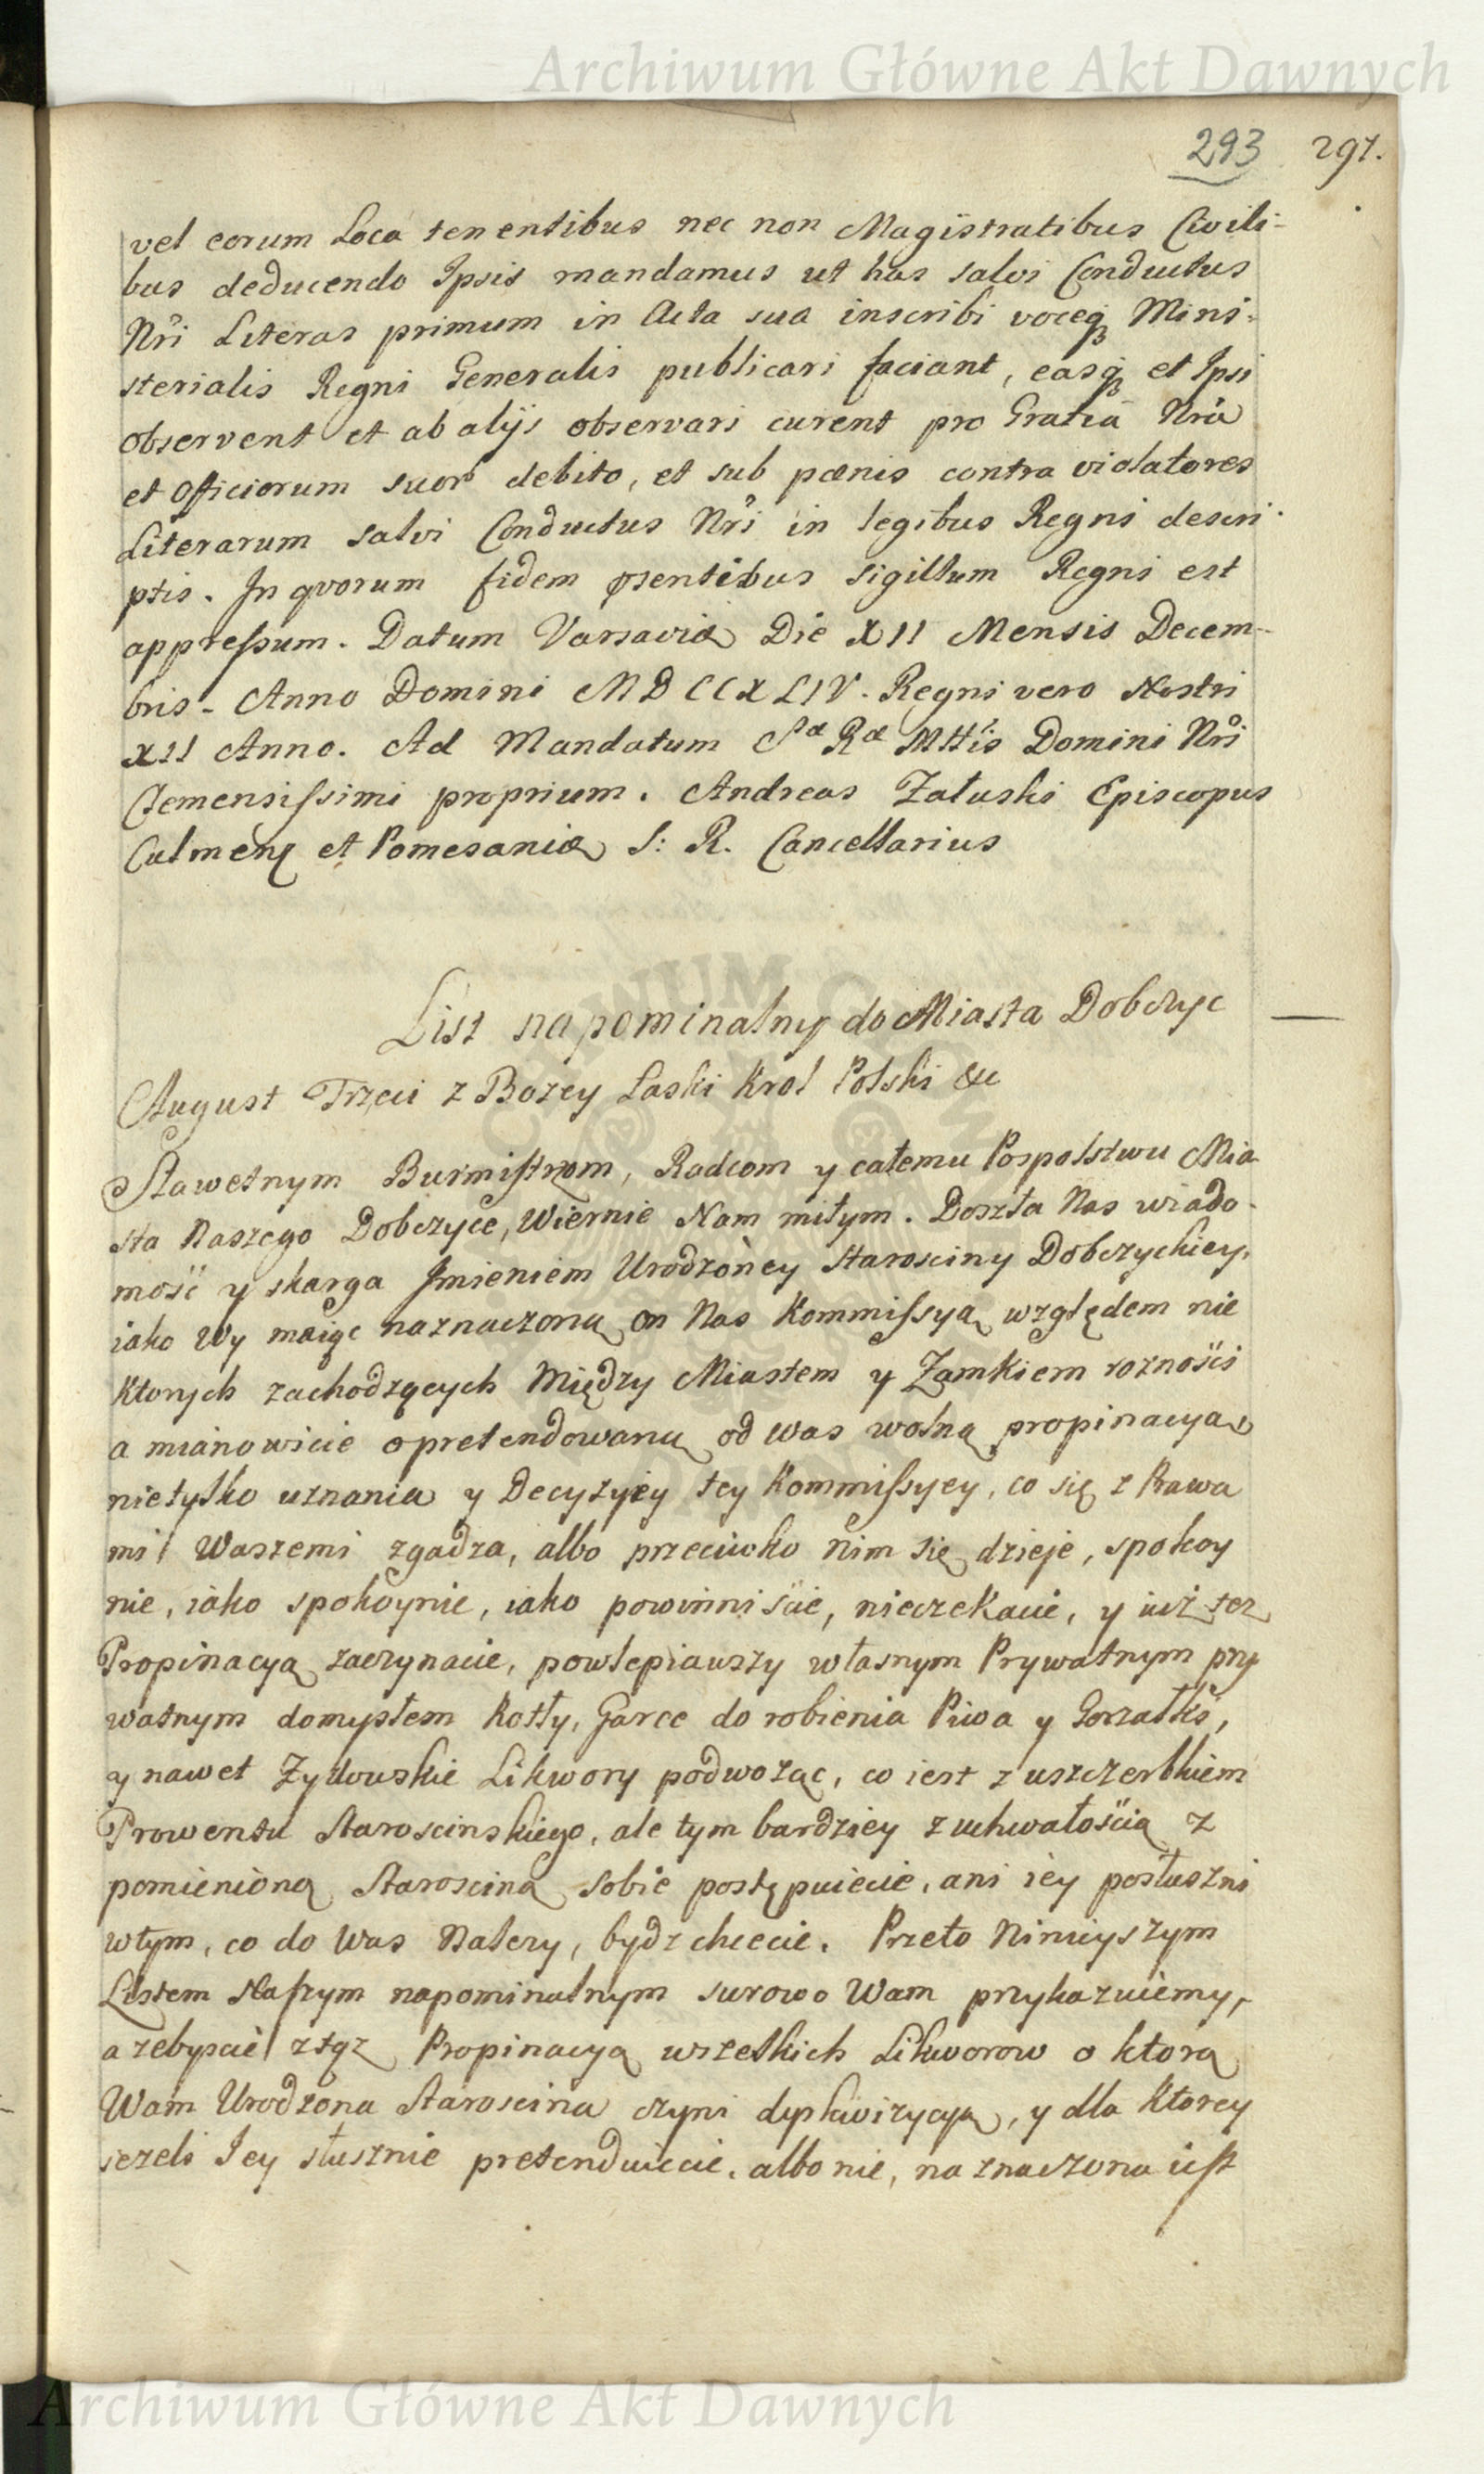 Archiwum Główne Akt Dawnych
293 291.
vel eorum Loca tenentibus nec non Magistratibus Civili-
bus deducendo Ipsis mandamus ut has salvi Conductus
Nri Literas primum in Acta sua inscribi voceq Mini-
sterialis Regni Generalis publicari faciant, easq et Ipsi
observent et ab alijs observari curent pro Gratia Nra
et Officiorum suor debito, et sub pænis contra violatores
Literarum salvi Conductus Nri in legibus Regni descri-
ptis. In qvorum fidem pſentibus Sigillum Regni est
appreſsum. Datum Varsaviæ Die XII Mensis Decem-
bris. Anno Domini MDCCXLIV. Regni vero Nostri
XII Anno. Ad Mandatum Sæ Ræ Mttis Domini Nri
Clemensiſsimi proprium. Andreas Załuski Episcopus
Culmenę et Pomesaniæ S: R. Cancellarius
List napominalny do Miasta Dobczyc
August Trzeci z Bozey Laski Krol Polski &c
Sławetnym Burmiſtrzom, Radcom y całemu Pospolstwu Mia
sta Naszego Dobczyce, Wiernie Nam miłym. Doszła Nas wiado-
mość y skarga Imieniem Urodzoney Starosciny Dobczyckiey,
iako Wy maiąc naznaczoną on Nas Kommiſsyą względem nie
ktorych zachodzących Między Miastem y Zamkiem rozności
a mianowicie opretendowaną od Was wolną propinacyą
nietylko uznania y Decyzyey tey Kommiſsyey, co się z Prawa
mi Waszemi zgadza, albo przeciwko nim się dzieje, spokoy
nie, iako spokoynie, iako powinniście, nieczekacie, y iuż tez
Propinacyą zaczynacie, powlepiawszy własnym Prywatnym pry
watnym domysłem Kotły, Garce do robienia Piwa y Gorzałki,
y nawet Zydowskie Likwory podwoząc, co iest z uszczerbkiem
Prowentu Staroscinskiego, ale tym bardziey z uchwałością z
pomienioną Starosciną sobie postępuiecie, ani iey posłuszni
wtym, co do Was Nalezy, bydz chcecie. Przeto Ninieyszym
Listem Naſzym napominalnym surowo Wam przykazuiemy,
azebyscie ztąz Propinacyą wszelkich Likworow o ktorą
Wam Urodzona Staroscina czyni dyskwizycyą, y dla Ktorey
iezeli Iey słusznie pretenduiecie, albo nie, naznaczona ieſt
Archiwum Główne Akt Dawnych